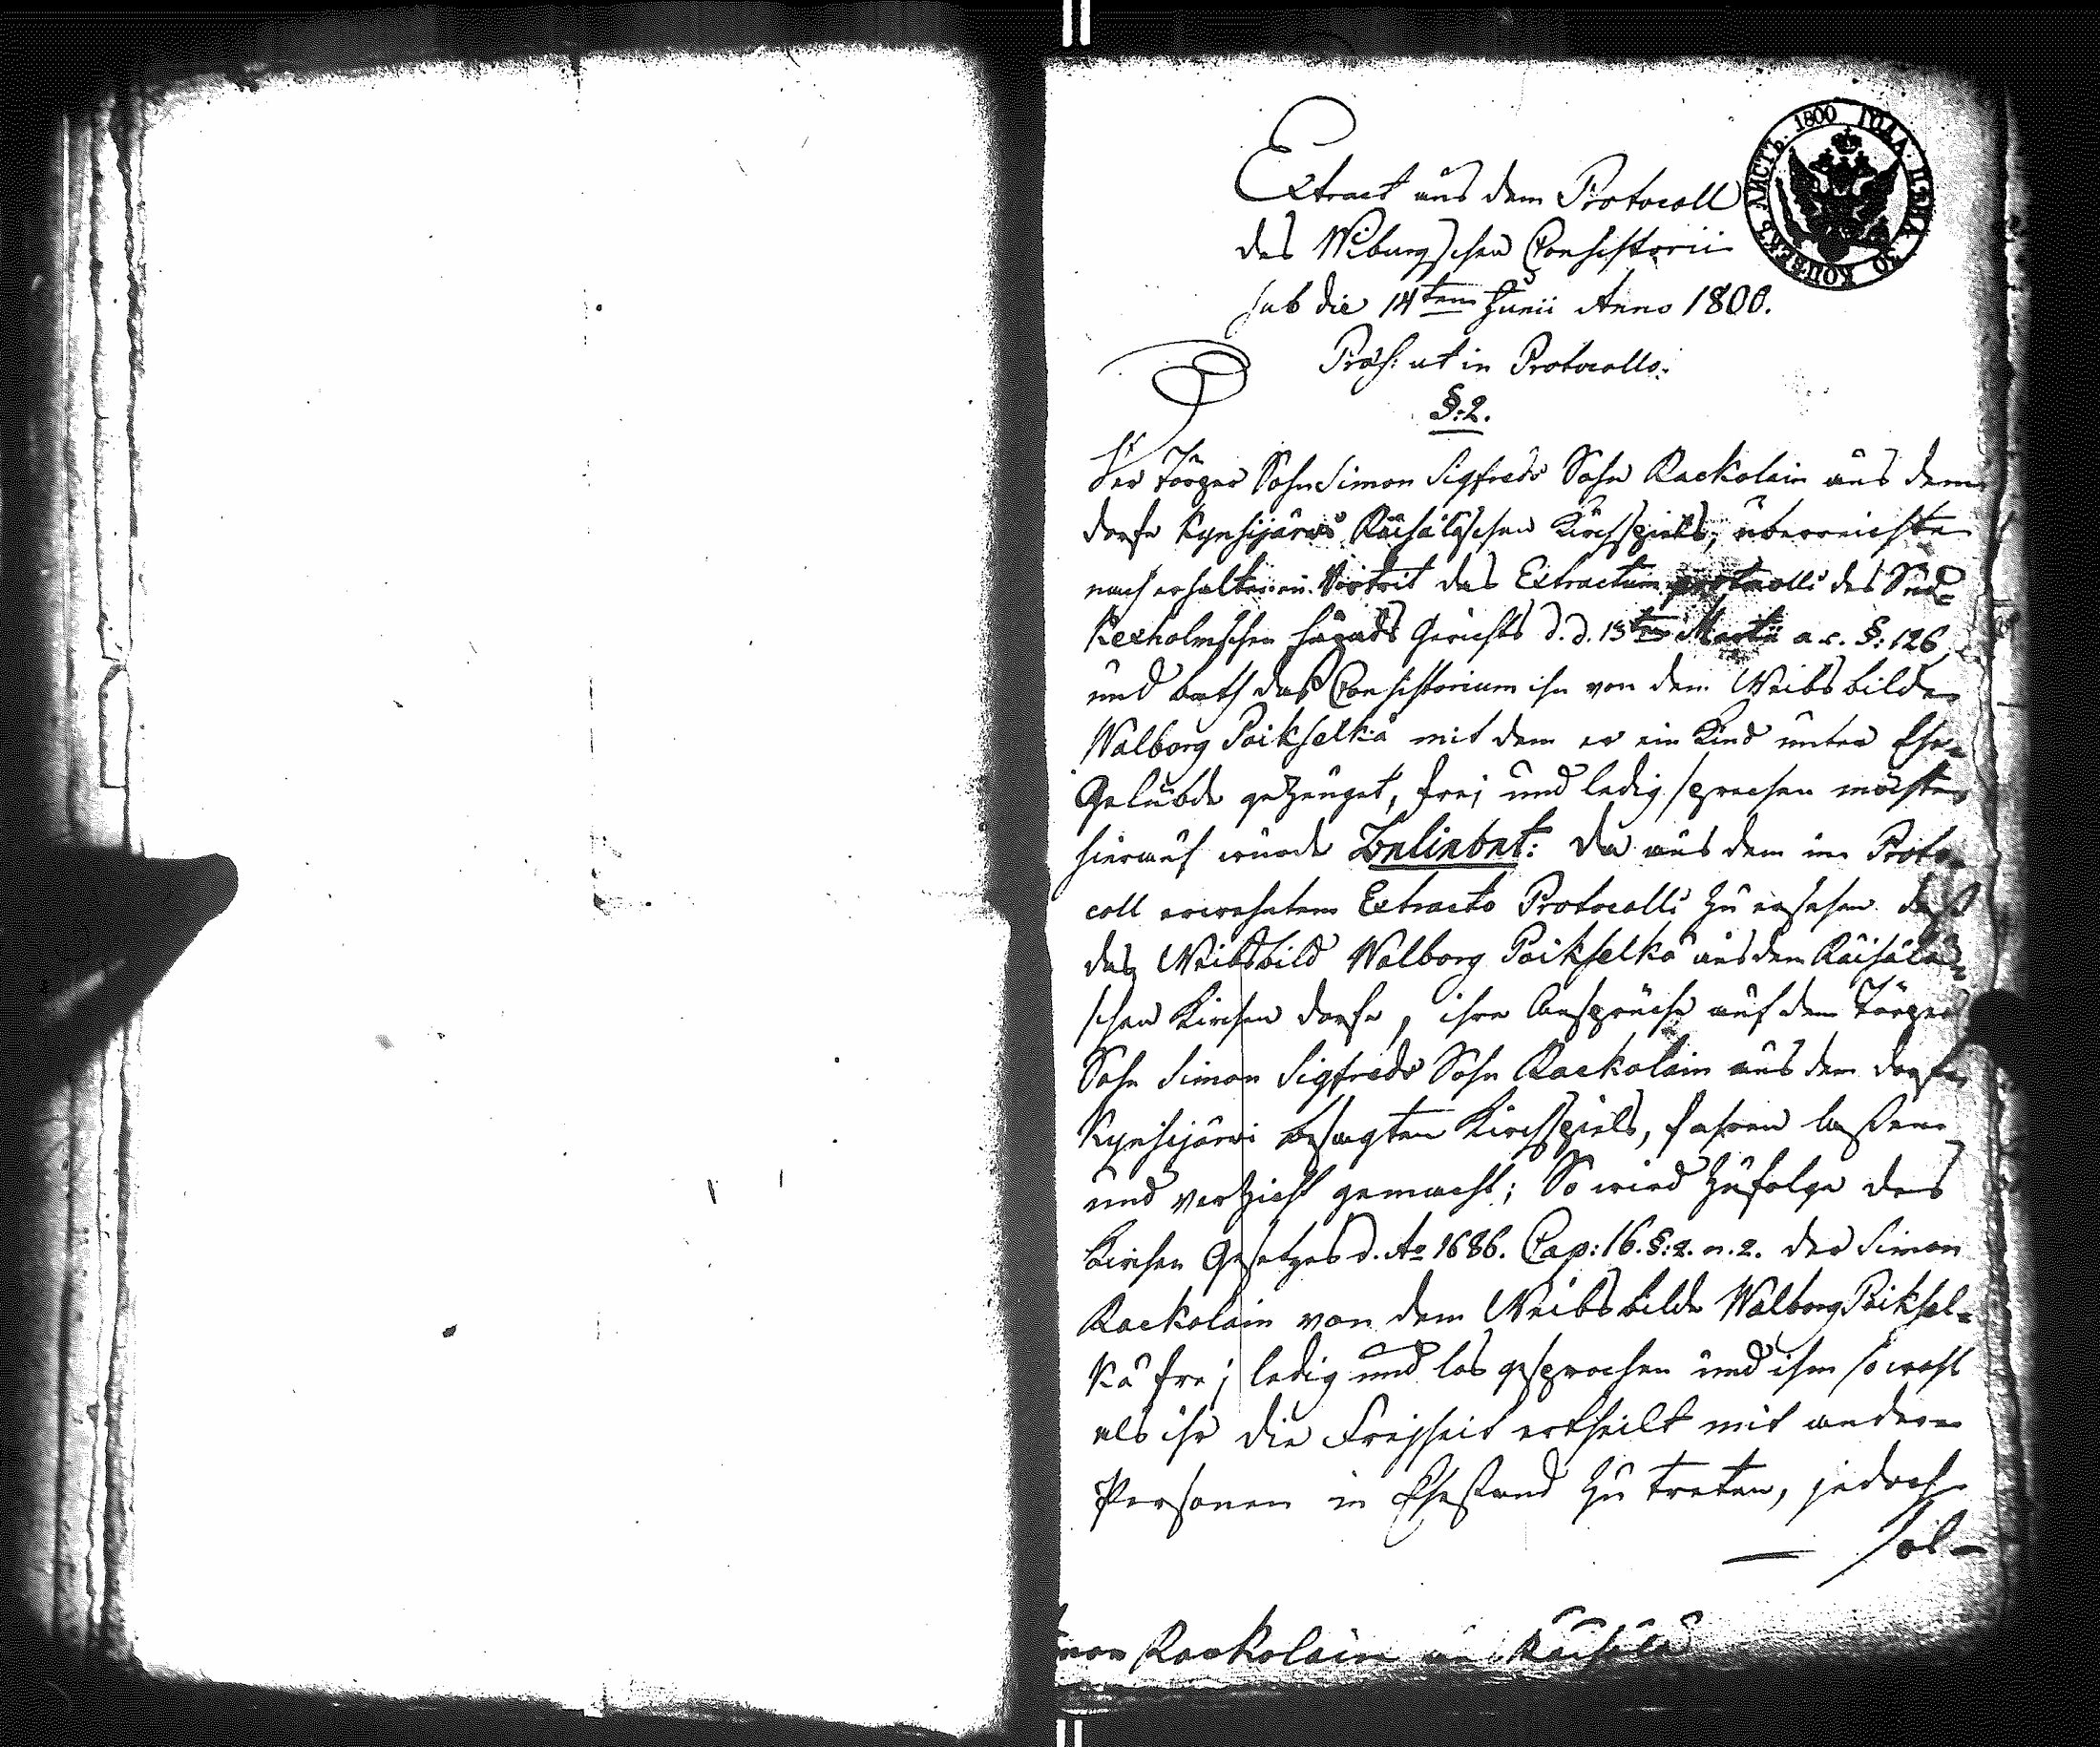 1800 ГОДА ЦѢНА 30 КОПѢЕКЪ ЛИСТЪ
Extract aus dem Protocoll
des Wiburgschen Consistorii
sub die 14ten Junii Anno 1800.
Präs: ut in Protocollo.
§: 2.
Der Torpar Sohn Simon Sigfreds Sohn Rackolain aus dem
dorfe Kynsijärvi Räisäläschen Kirchspiels, überreichte
nach erhaltenen Vortrit das Extractum protocolli des Süd=
Kexholmschen Härads Gerichts d. d. 13ten Martii a. c. §: 126,
und bath daß Consistorium ihn von dem Weibsbilde
Walborg Poikselkä mit dem er ein Kind unter Ehe=
Gelübde gezeuget, frei und ledig sprechen möchte
hierauf wurde Beliebet: Da aus dem im Proto=
coll erwehntem Extracto Protocolli zu ersehen daß
das Weibsbild Walborg Poikselkä aus dem Räisälä=
schen Kirchen dorfe, ihre Ansprüche auf dem Torpar
Sohn Simon Sigfreds Sohn Rackolain aus dem dorfe
Kynsijärvi besagten Kirchspiels, fahren laßen
und verzicht gemacht; So wird zufolge des
Kirchen Gesetzes d. Ao 1686. Cap: 16. §: 2. n. 2. der Simon
Rackolain von dem Weibsbilde Walborg Poiksel=
kä frei ledig und los gesprochen und ihm sowohl
als ihr die Freyheit ertheilt mit andern
Personen in Ehestand zu treten, jedoch
— sol-
Rackolain Räisälä